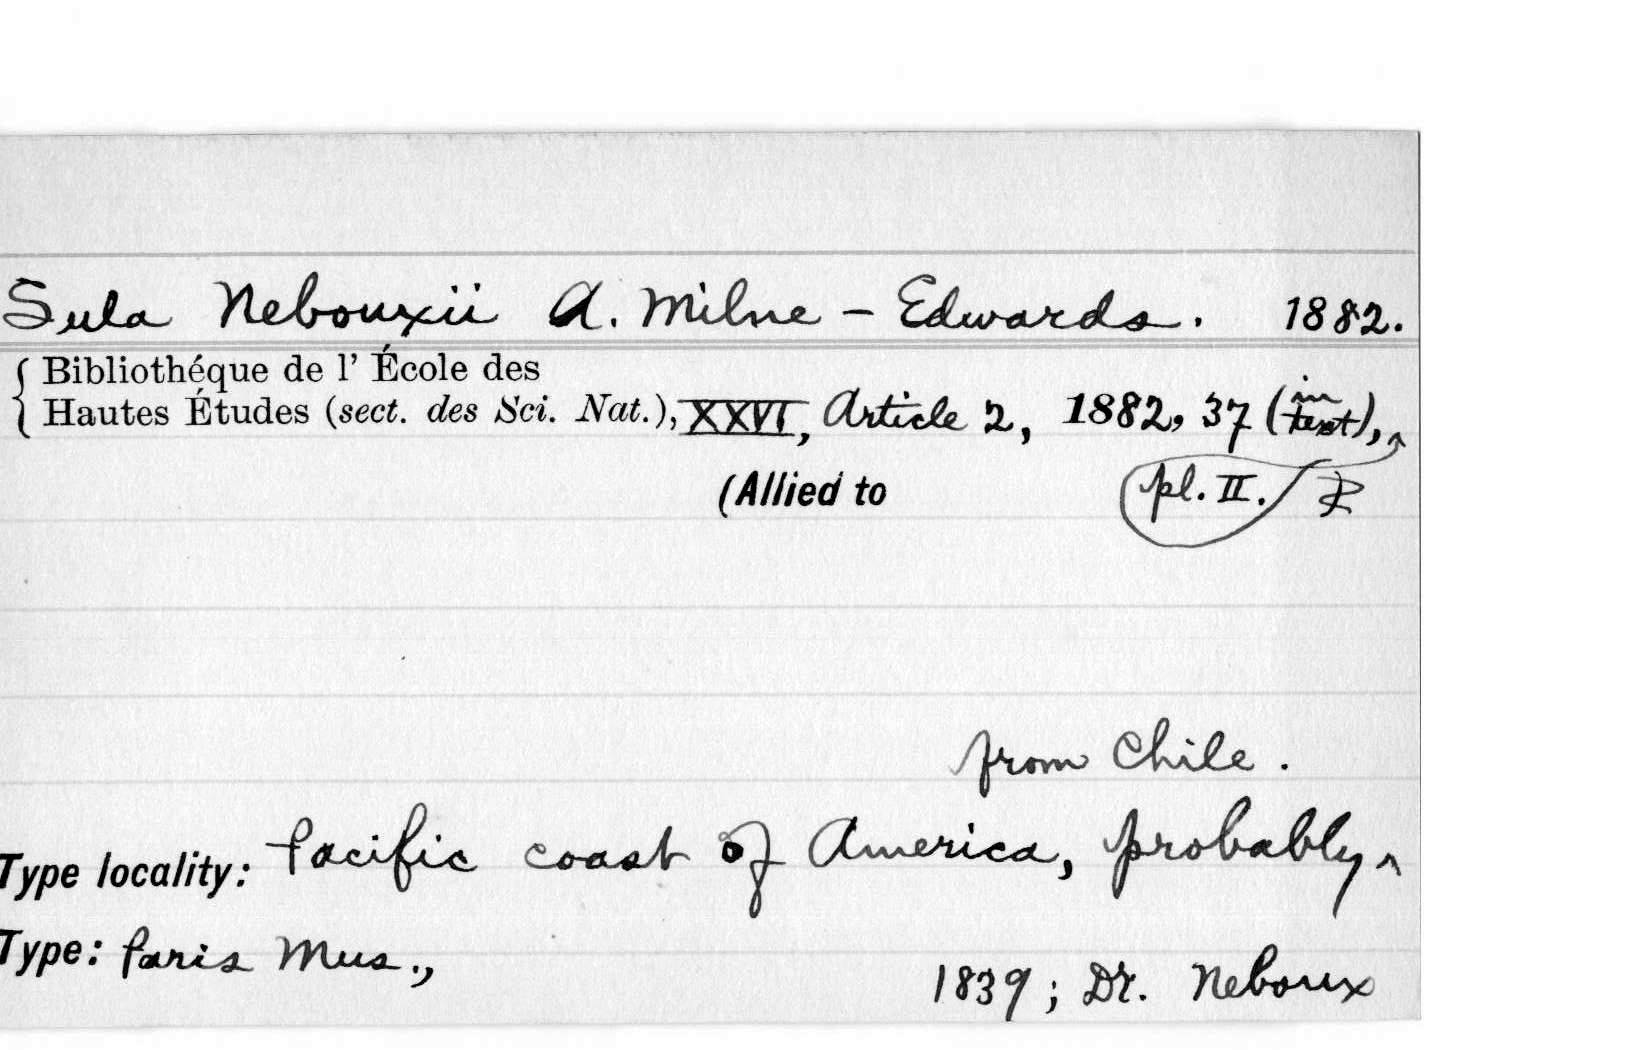 Sula Nebouxii A. Milne-Edwards. 1882.
Bibliothéque de l' École des
Hautes Études (sect. des Sci. Nat.), XXVI, Article 2, 1882, 37 (in text),
(Allied to pl. II.
from Chile.
Type locality: Pacific coast of America, probably
Type: Paris Mus., 1839; Dr. Neboux